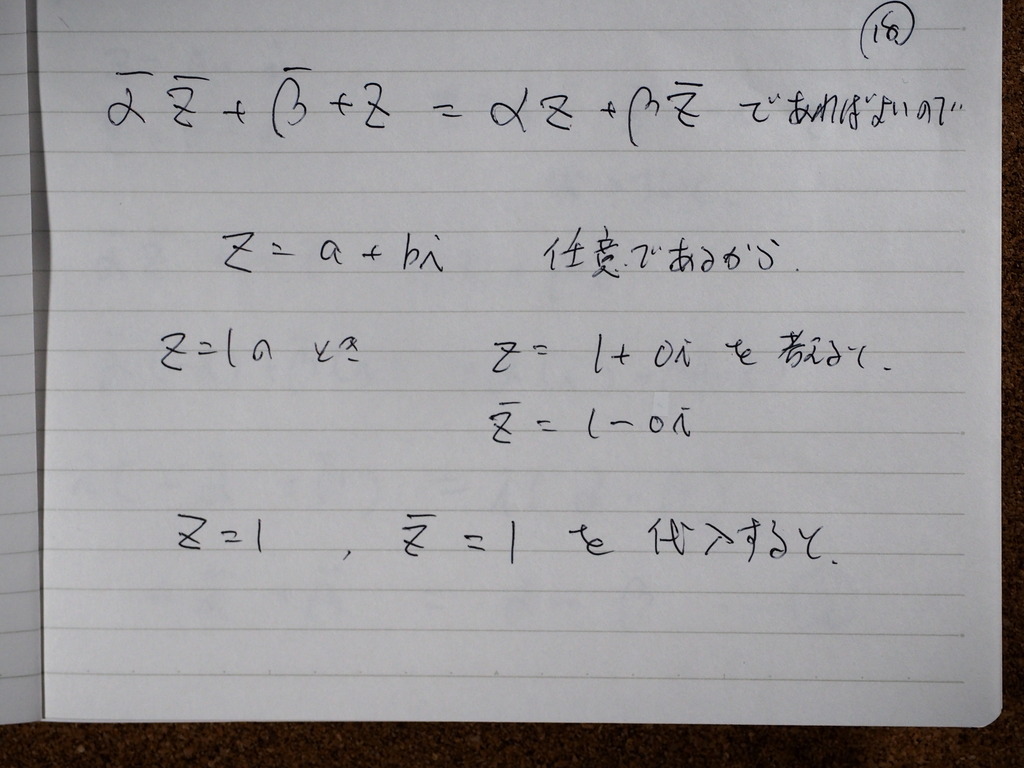 ᾱ z̄ + β̄ + z = αz + βz̄ であればよいので
z = a + bi 任意であるから.
z = 1 のとき z = 1 + 0i を考えると.
z̄ = 1 − 0i
z = 1 , z̄ = 1 を代入すると.